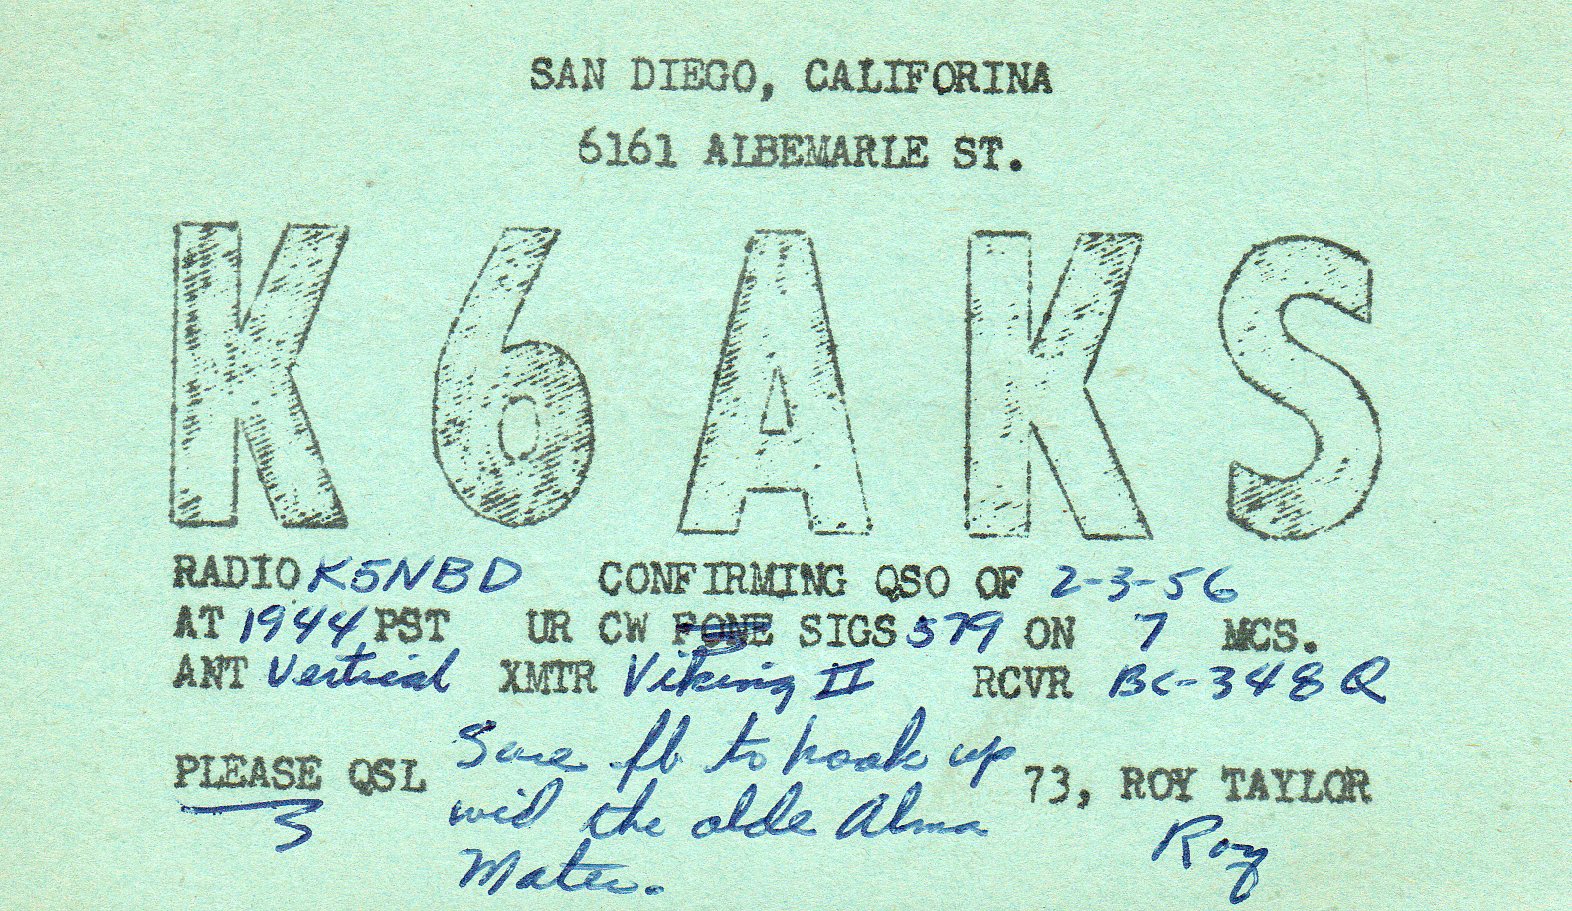 SAN DIEGO, CALIFORINA
6161 ALBEMARLE ST.
K6AKS
RADIO K5NBD CONFIRMING QSO OF 2-3-56
AT 1944 PST UR CW FONE SIGS 579 ON 7 MCS.
ANT Vertical XMTR Viking II RCVR BC-348Q
PLEASE QSL Sure fb to hook up wid the olde Alma Mater. 73, ROY TAYLOR
Roy